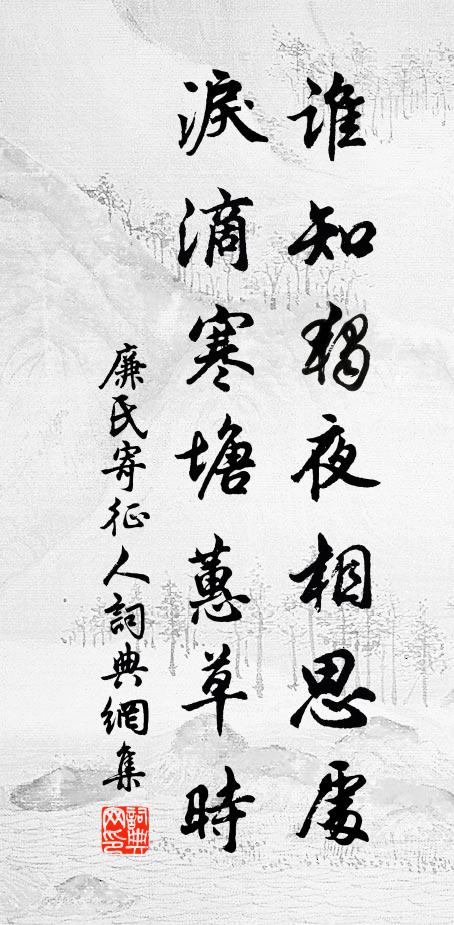 誰知獨夜相思處
淚滴寒塘蕙草時
廉氏寄征人詞典網集
詞典网印